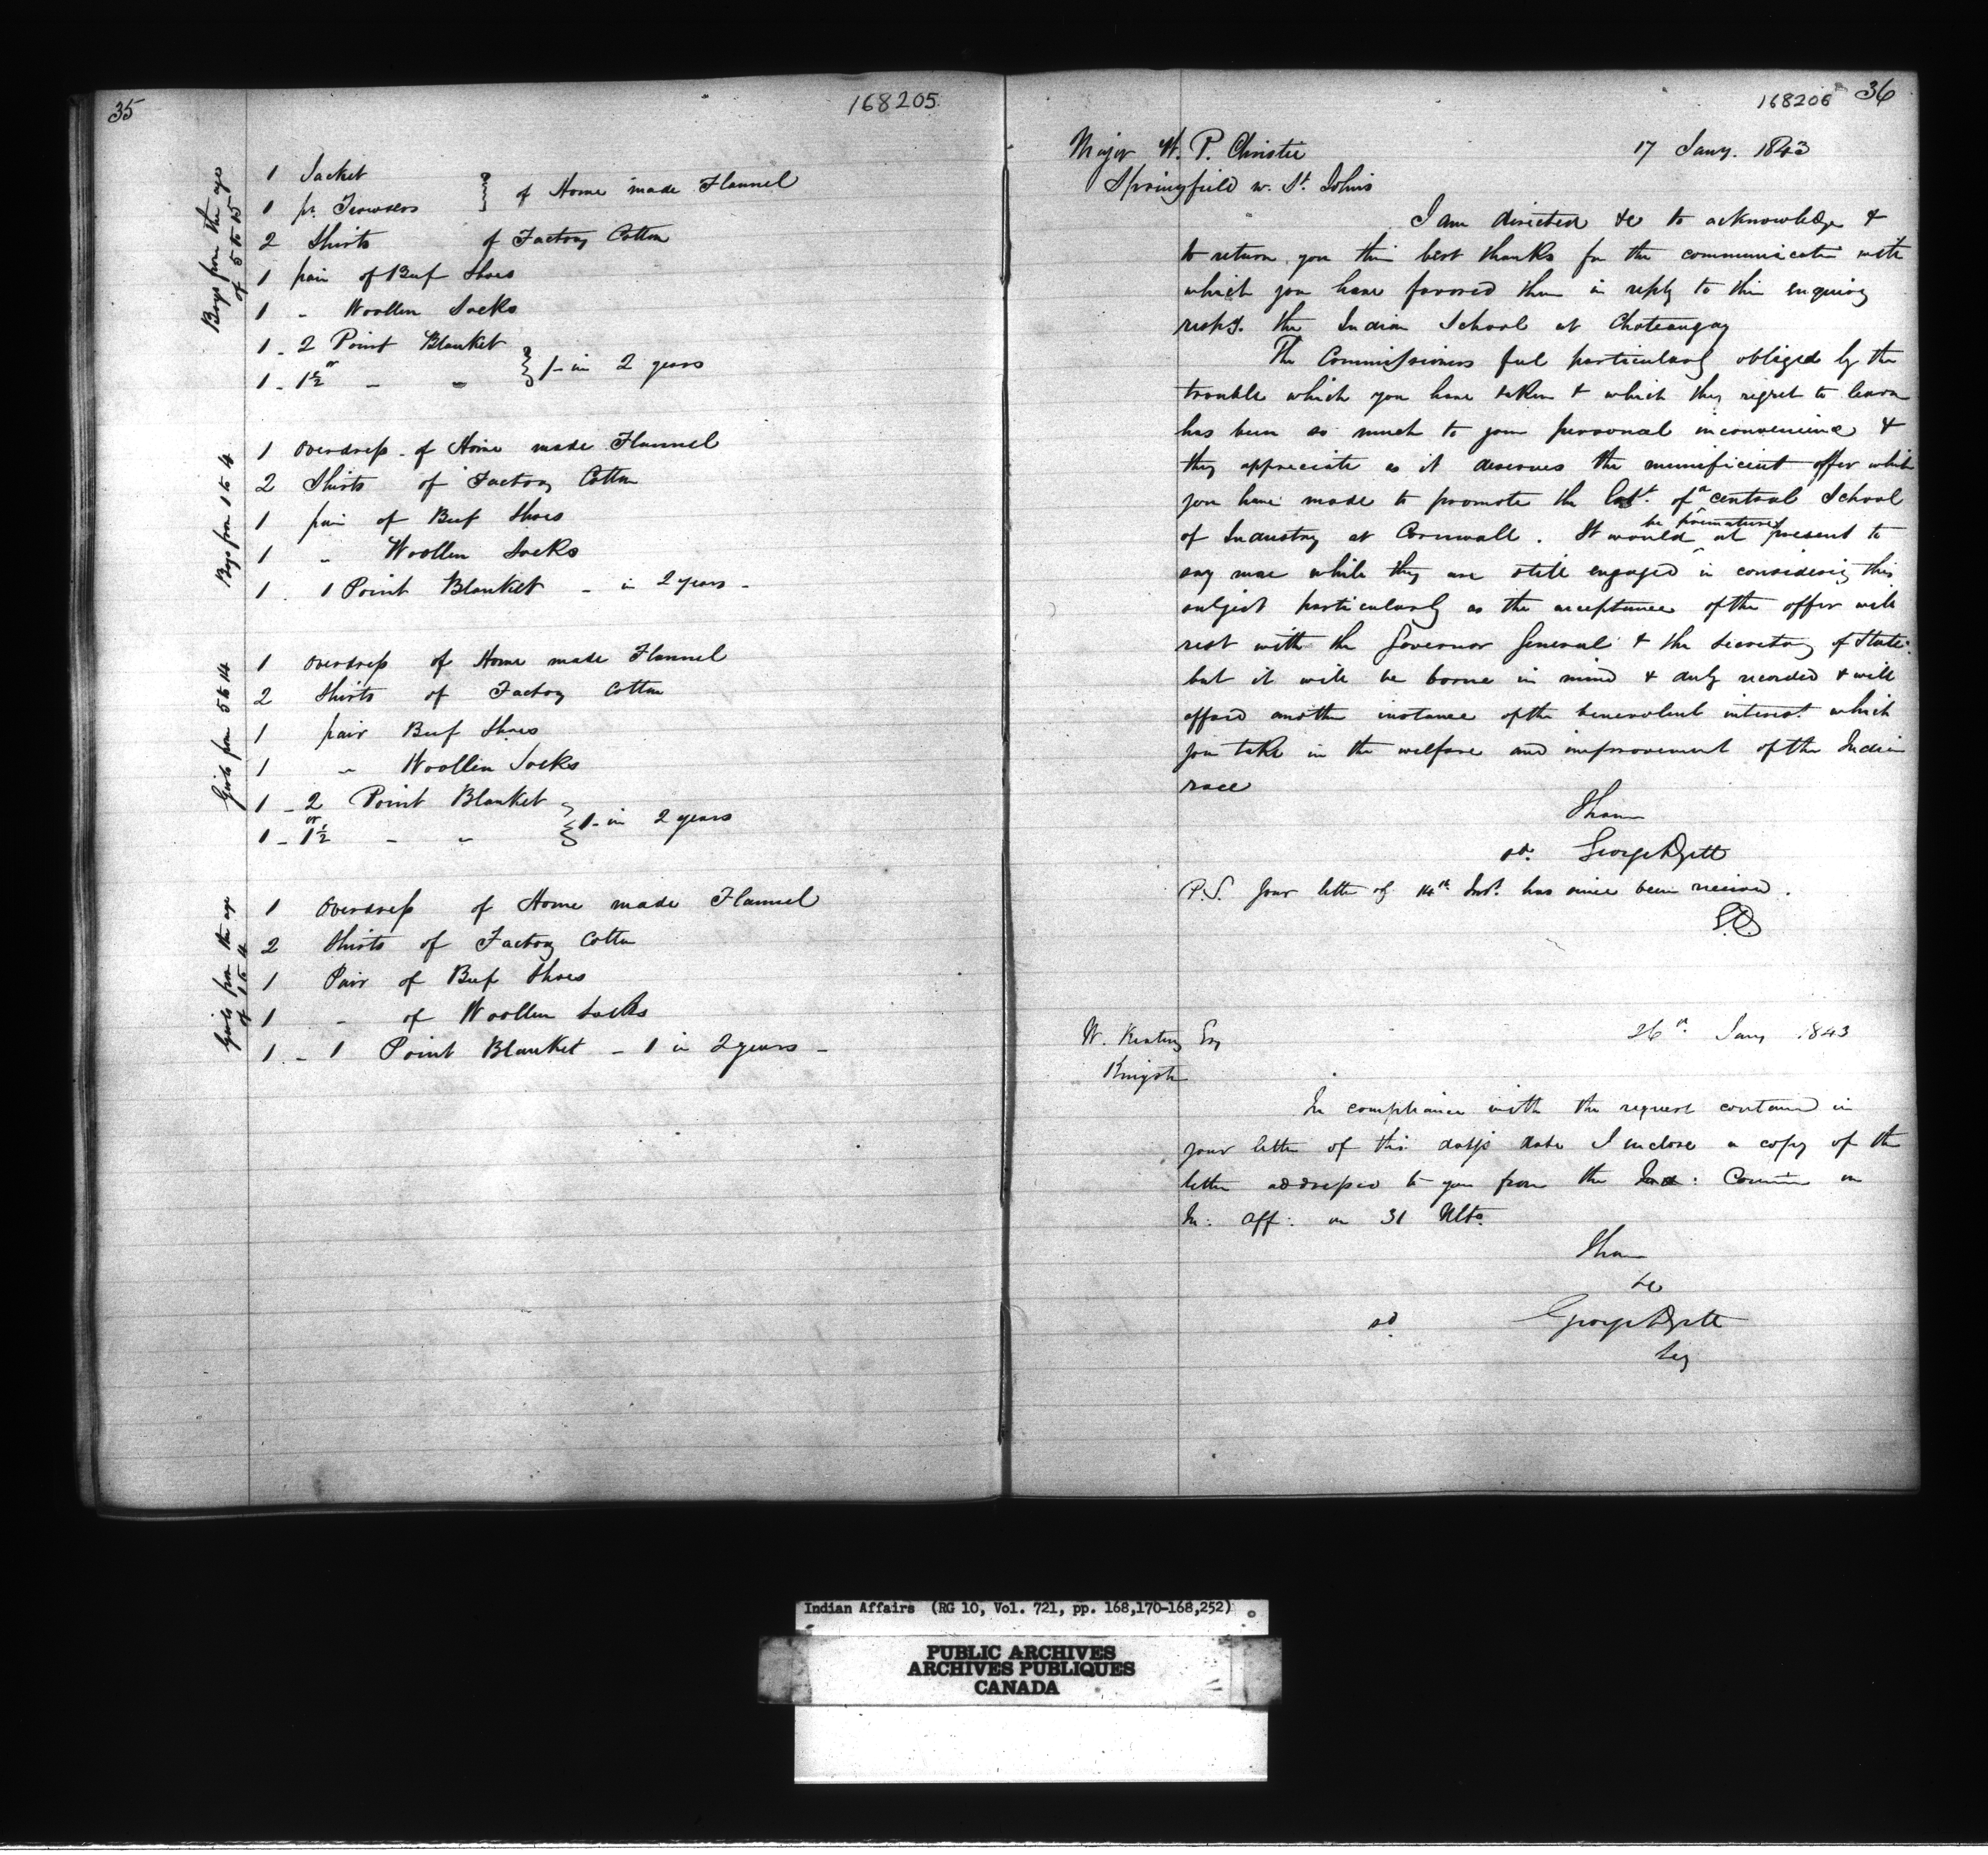 35
168205
Boys from the ages
of 5 to 15
1 Jacket
1 pr. Trowsers } of Home made Flannel
2 Shirts of Factory Cotton
1 pair of Beef Shoes
1 " Woollen Socks
1 - 2 Point Blanket
or
1 - 1½ - " } 1 - in 2 years
Boys from 1 to 4
1 Overdress of Home made Flannel
2 Shirts of Factory Cotton
1 pair of Beef Shoes
1 " Woollen Socks
1 . 1 Point Blanket - in 2 years -
Girls from 5 to 14
1 Overdress of Home made Flannel
2 Shirts of Factory Cotton
1 pair Beef Shoes
1 " Woollen Socks
1 - 2 Point Blanket
or
1 - 1½ - " } 1 - in 2 years
Girls from the age
of 1 to 4
1 Overdress of Home made Flannel
2 Shirts of Factory Cotton
1 Pair of Beef Shoes
1 " of Woollen Socks
1 - 1 Point Blanket - 1 in 2 years -
168206 36
Major W. P. Christie 17 Jany. 1843
Springfield w. St. Johns
I am directed &c to acknowledge &
to return you their best thanks for the communication with
which you have favored them in reply to their enquiry
respg. the Indian School at Chateaugay
The Commissioners feel particularly obliged by the
trouble which you have taken & which they regret to learn
has been so much to your personal inconvenience &
they appreciate as it deserves the munificent offer which
you have made to promote the Estt. of a central School
of Industry at Cornwall. It would be premature at present to
say more while they are still engaged in considering this
subject particularly as the acceptance of the offer will
rest with the Governor General & the Secretary of State:
but it will be borne in mind & duly recorded & will
afford another instance of the benevolent interest which
you take in the welfare and improvement of the Indian
race
I have
sd. George Dyett
P.S. Your letter of 14th Inst. has since been received.
G.D.
W. Keating Esq 26th. Jany 1843
Kingston
In compliance with the request contained in
your letter of this day's date I inclose a copy of the
letter addressed to you from the Commn on
In: Aff: on 31 Ulto.
I have
&c
sd George Dyett
Secy
Indian Affairs (RG 10, Vol. 721, pp. 168,170-168,252)
PUBLIC ARCHIVES
ARCHIVES PUBLIQUES
CANADA